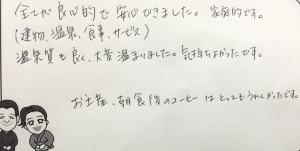 全てが良心的で安心できました。家庭的です。
(建物、温泉、食事、サービス)
温泉質も良く、大変温まりました。気持ちよかったです。
お土産、朝食後のコーヒーはとってもうれしかったです。